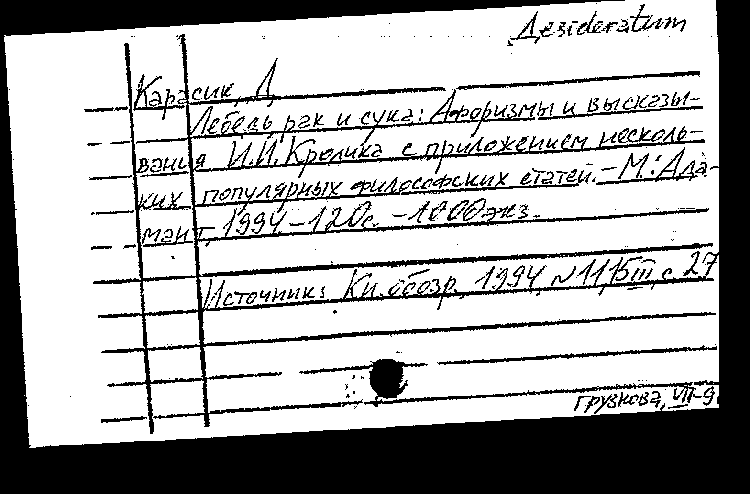 Дезideratum
Карасик, Д
Лебедь рак и сука: Афоризмы и высказы-
вания И.И. Кролика с приложением несколь-
ких популярных философских статей. – М.: Ада-
мант, 1994 – 120с. – 1000экз.
Источник: Кн. обозр., 1994, №11, 15 III, с. 27
Грузнова, VII-9